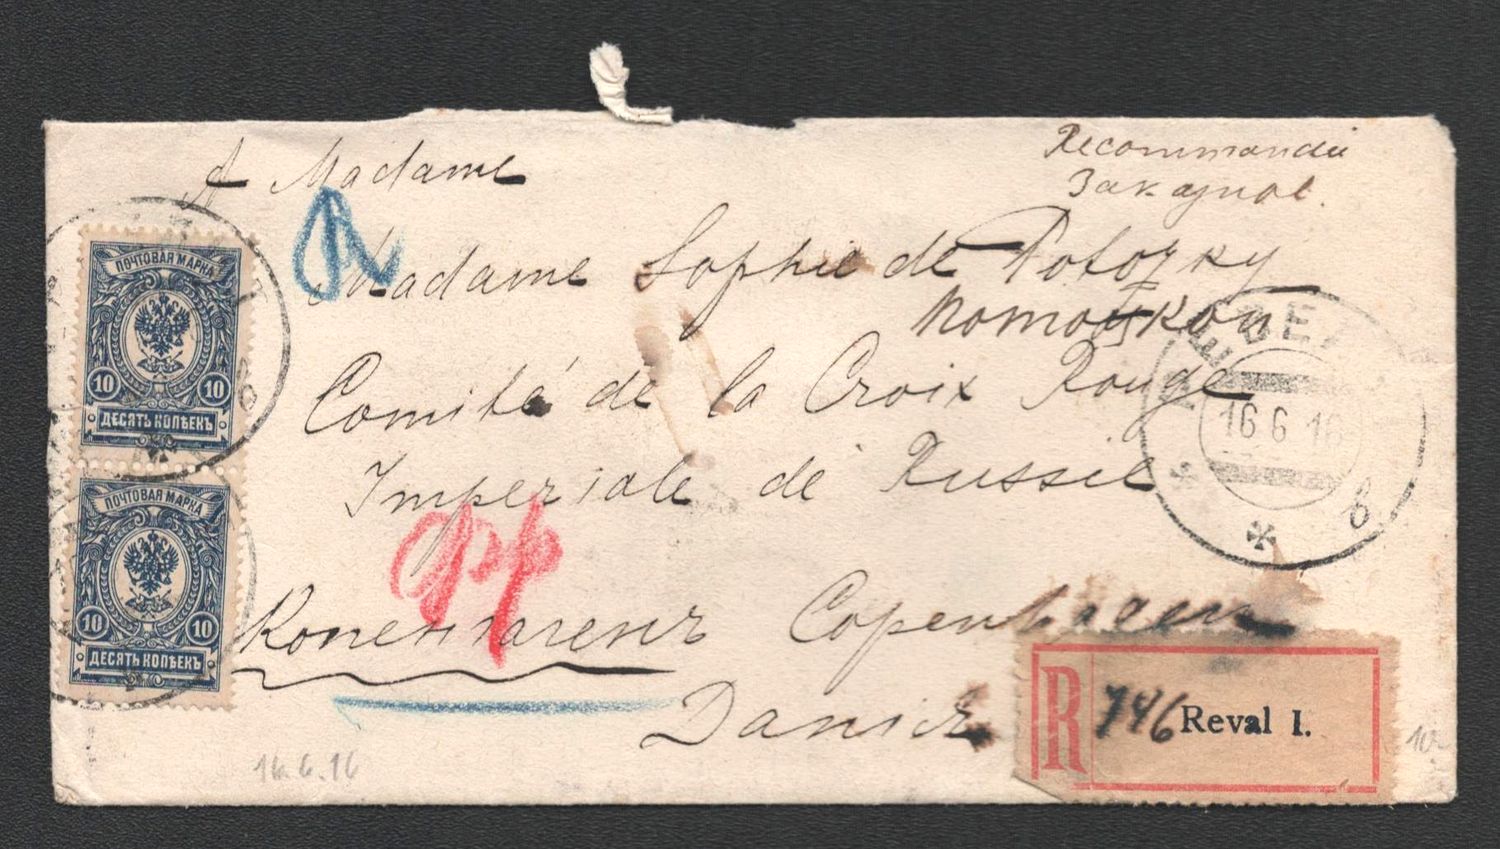 Recommandée
Заказное.
A Madame
Madame Sophie de Pototzky
Comité de la Croix Rouge
Impériale de Russie
Копенгагенъ Copenhagen
Danie
ПОЧТОВАЯ МАРКА
10 10
ДЕСЯТЬ КОПѢЕКЪ
ПОЧТОВАЯ МАРКА
10 10
ДЕСЯТЬ КОПѢЕКЪ
РЕВЕЛЬ
16 6 16
в
R 746 Reval I.
16.6.16